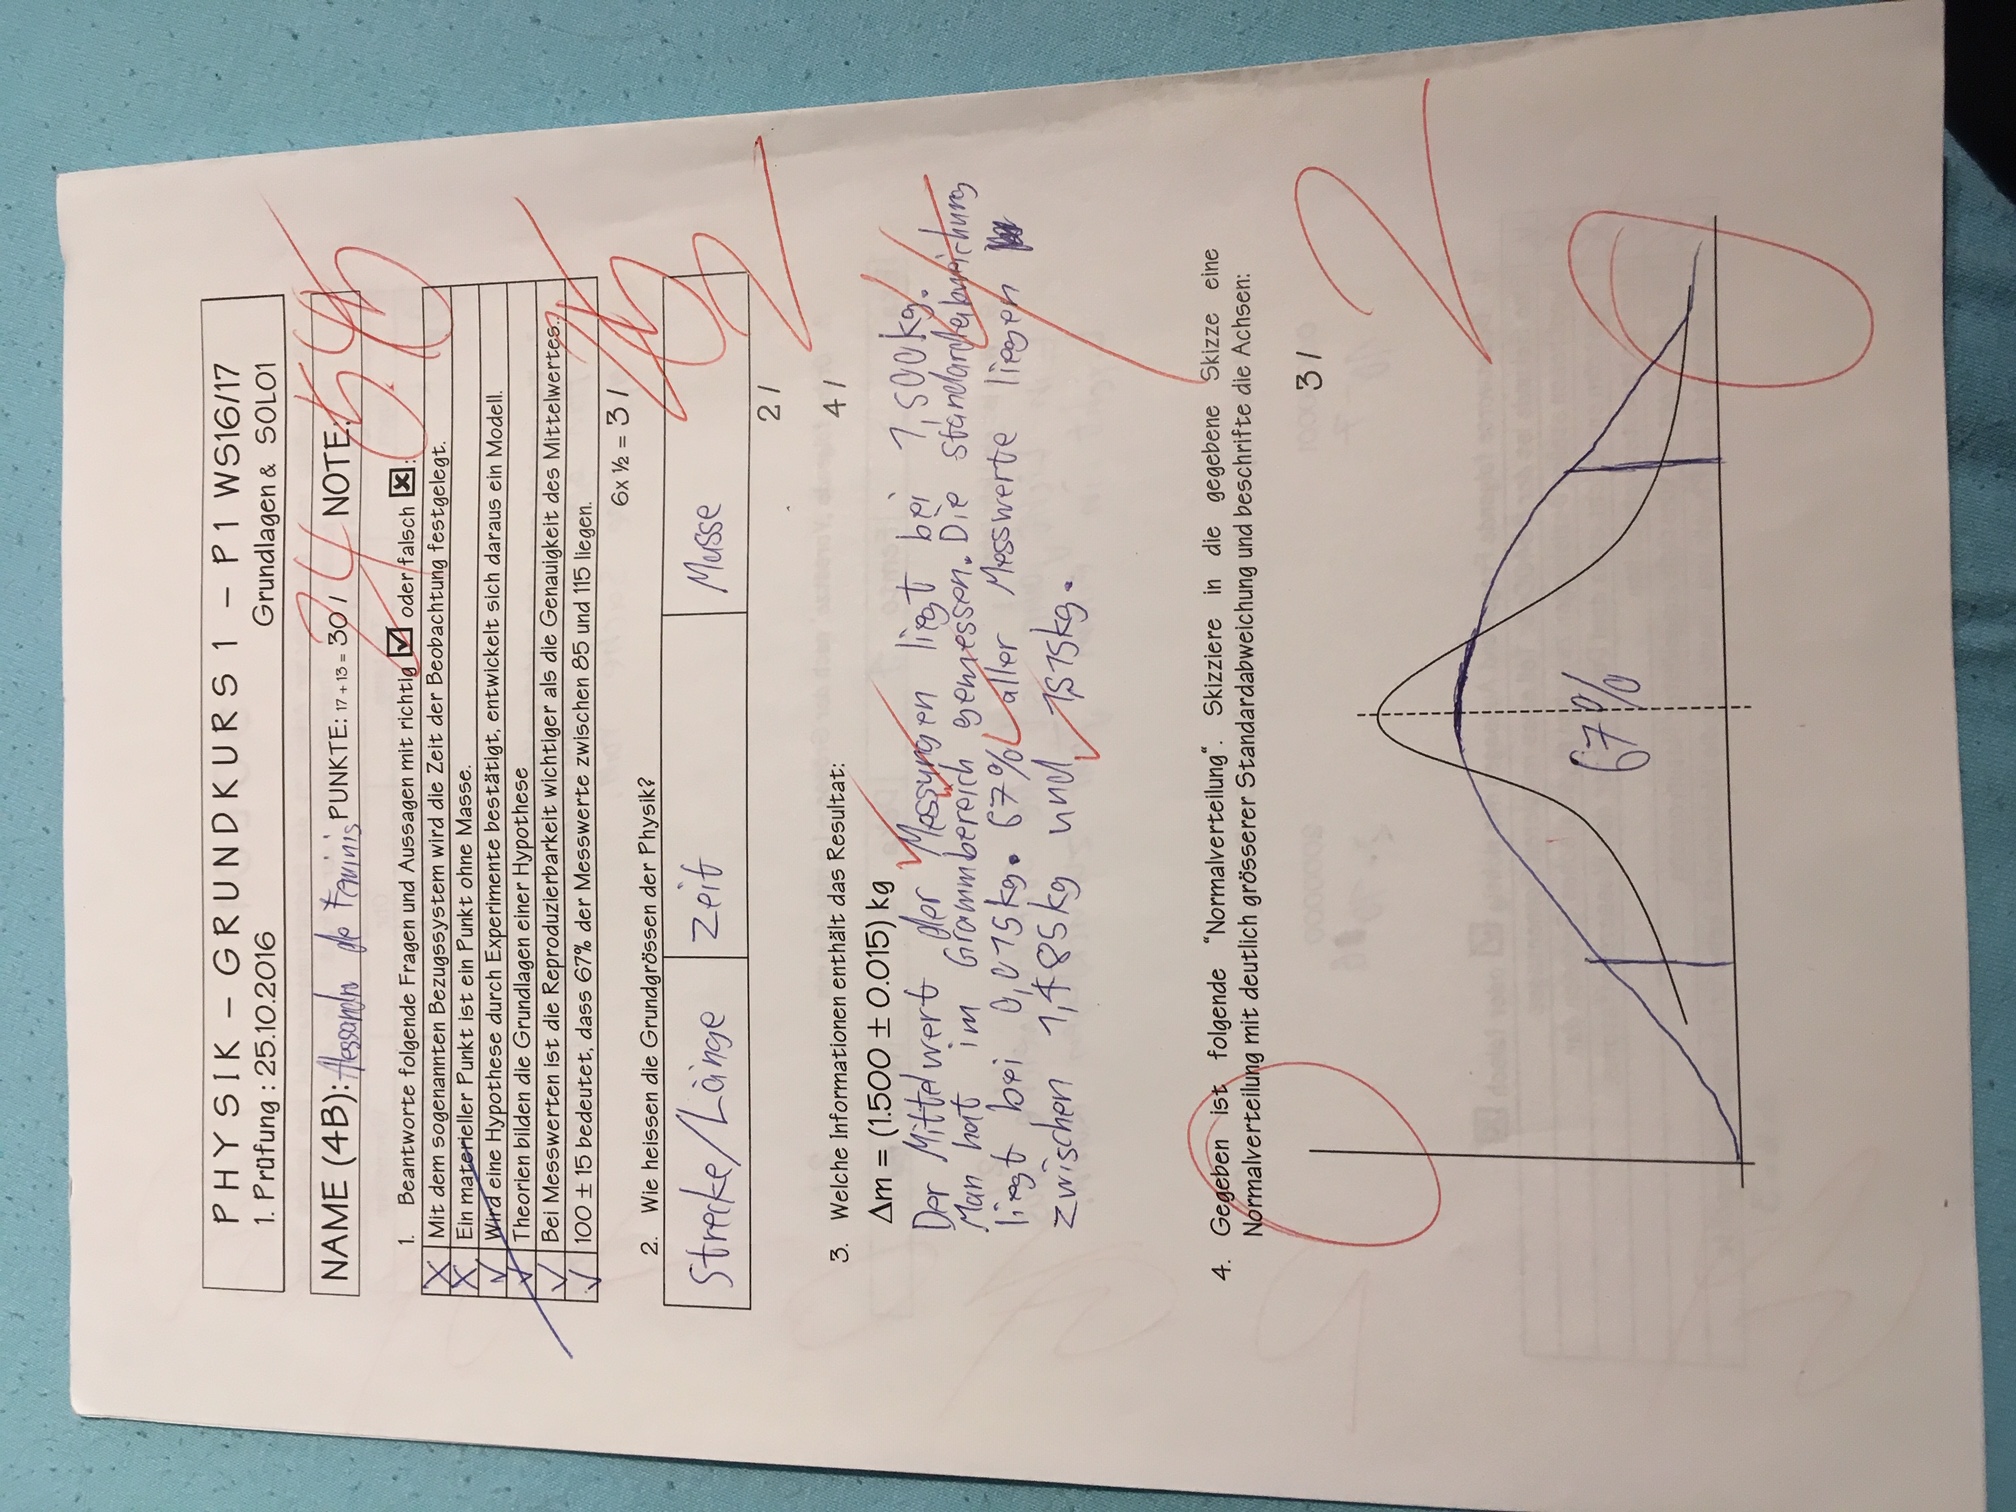 PHYSIK – GRUNDKURS 1 – P1 WS16/17
1. Prüfung : 25.10.2016 Grundlagen & SOL01
NAME (4B): Alessandro de Feminis PUNKTE: 17 + 13 = 30 / 24 NOTE: 5.45
1. Beantworte folgende Fragen und Aussagen mit richtig ☑ oder falsch ☒:
X Mit dem sogenannten Bezugssystem wird die Zeit der Beobachtung festgelegt.
X Ein materieller Punkt ist ein Punkt ohne Masse.
✓ Wird eine Hypothese durch Experimente bestätigt, entwickelt sich daraus ein Modell.
✓ Theorien bilden die Grundlagen einer Hypothese
✓ Bei Messwerten ist die Reproduzierbarkeit wichtiger als die Genauigkeit des Mittelwertes..
✓ 100 ± 15 bedeutet, dass 67% der Messwerte zwischen 85 und 115 liegen.
6x ½ = 3 /
2. Wie heissen die Grundgrössen der Physik?
Strecke/Länge Zeit Masse
2 / 2
3. Welche Informationen enthält das Resultat: 4 / 4
Δm = (1.500 ± 0.015) kg
Der Mittelwert der Messungen liegt bei 1,500kg.
Man hat im Grammbereich gemessen. Die Standardabweichung
liegt bei 0,015kg. 67% aller Messwerte liegen
zwischen 1,485kg und 1,515kg.
4. Gegeben ist folgende "Normalverteilung". Skizziere in die gegebene Skizze eine
Normalverteilung mit deutlich grösserer Standardabweichung und beschrifte die Achsen:
3 / 2
67%